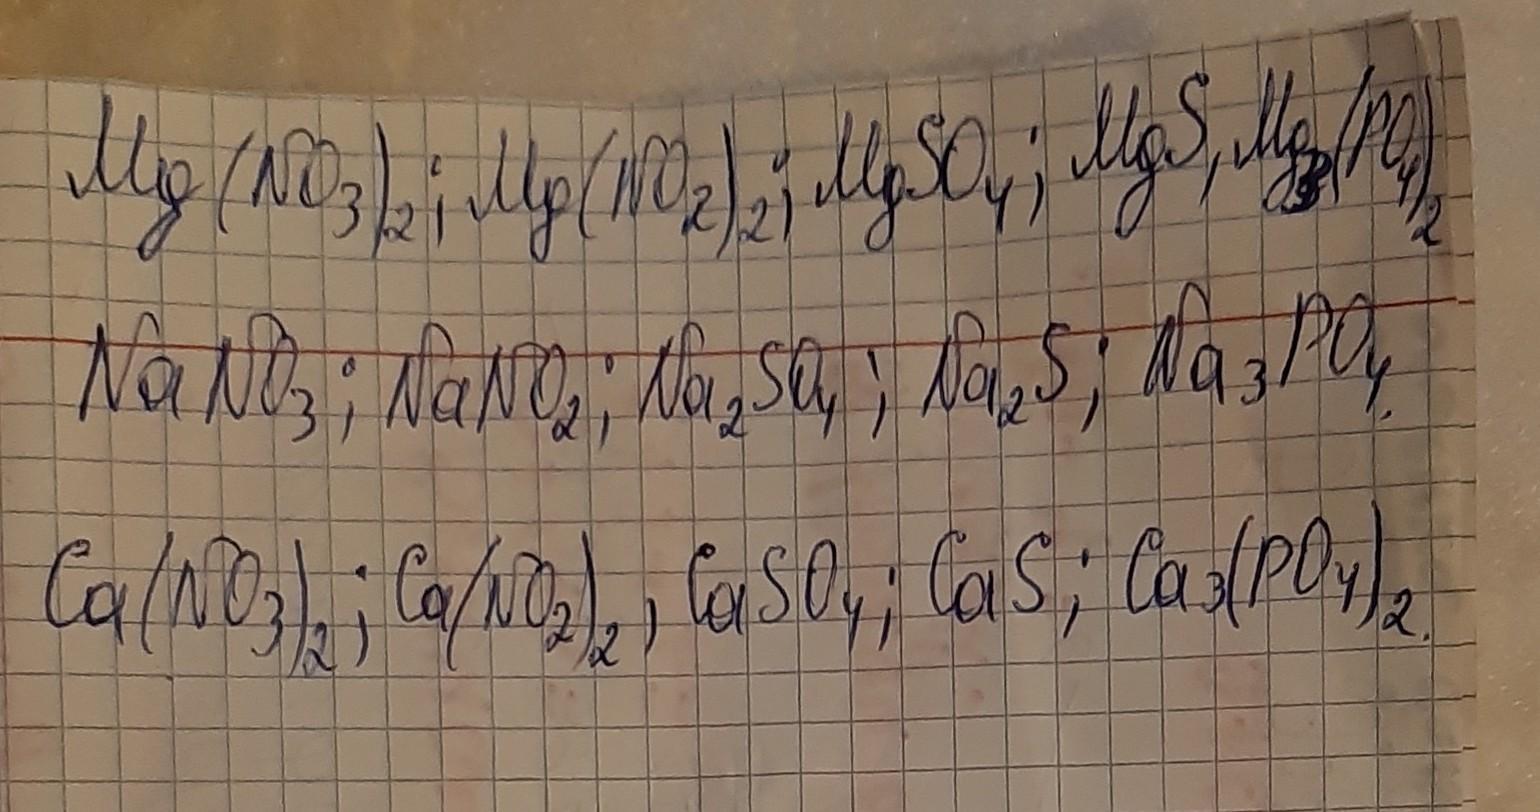 Mg(NO₃)₂; Mg(NO₂)₂; MgSO₄; MgS, Mg₃(PO₄)₂
NaNO₃; NaNO₂; Na₂SO₄; Na₂S; Na₃PO₄.
Ca(NO₃)₂; Ca(NO₂)₂, CaSO₄; CaS; Ca₃(PO₄)₂.